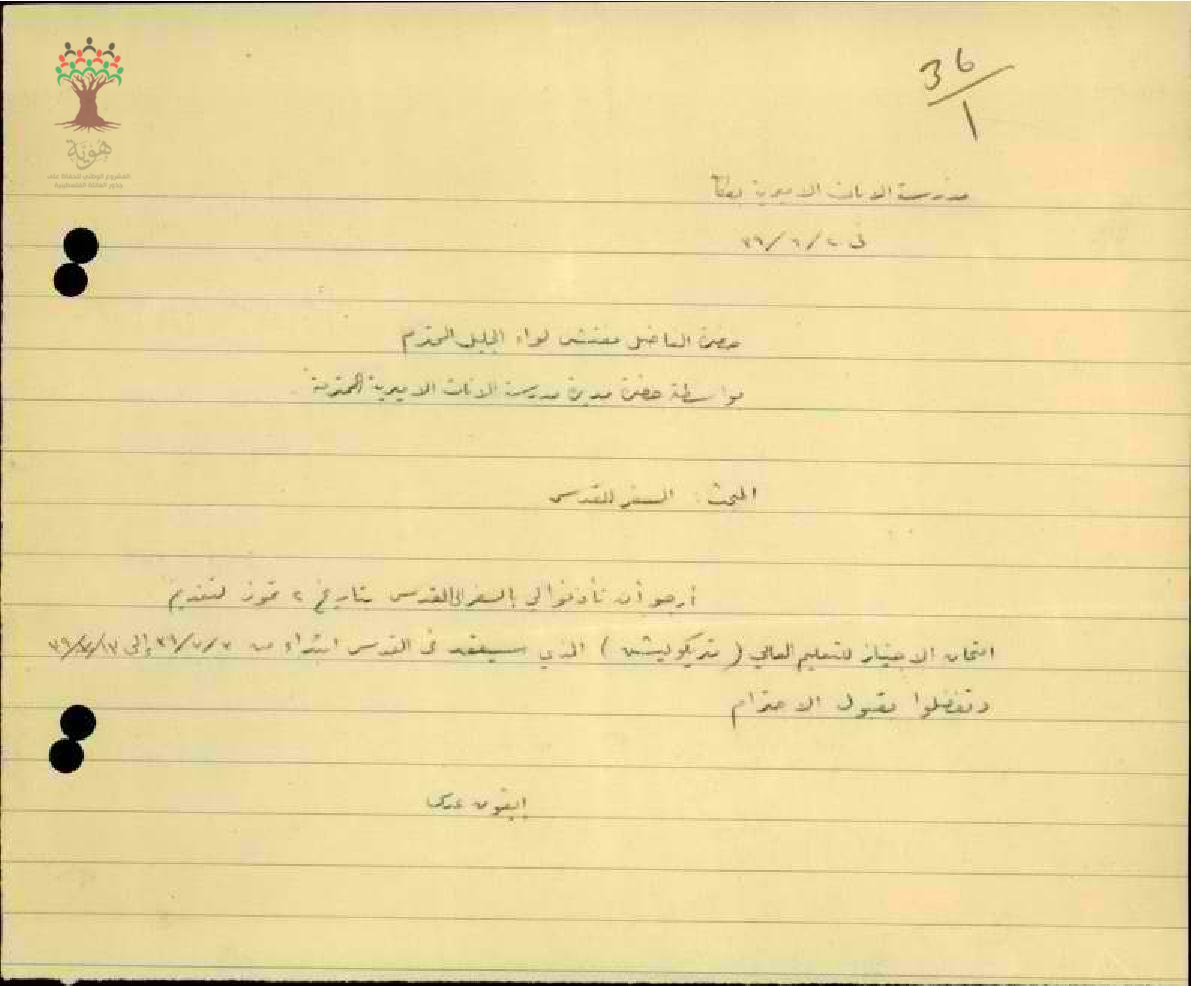 هوية
المشروع الوطني للحفاظ على
جذور العائلة الفلسطينية
36
1
مدرسة الاناث الاميرية بعكا
في ٢ / ٦ / ٣٩
حضرة الفاضل مفتش لواء الجليل المحترم
بواسطة حضرة مديرة مدرسة الاناث الاميرية المحترمة
المبحث : السفر للقدس
أرجو أن تأذنوا لي بالسفر الى القدس بتاريخ ٢ تموز لتقديم
امتحان الاجتياز للتعليم العالي ( متريكوليشن ) الذي سيعقد في القدس ابتداء من ٣٩/٧/٣ إلى ٣٩/٧/١٣
وتفضلوا بقبول الاحترام